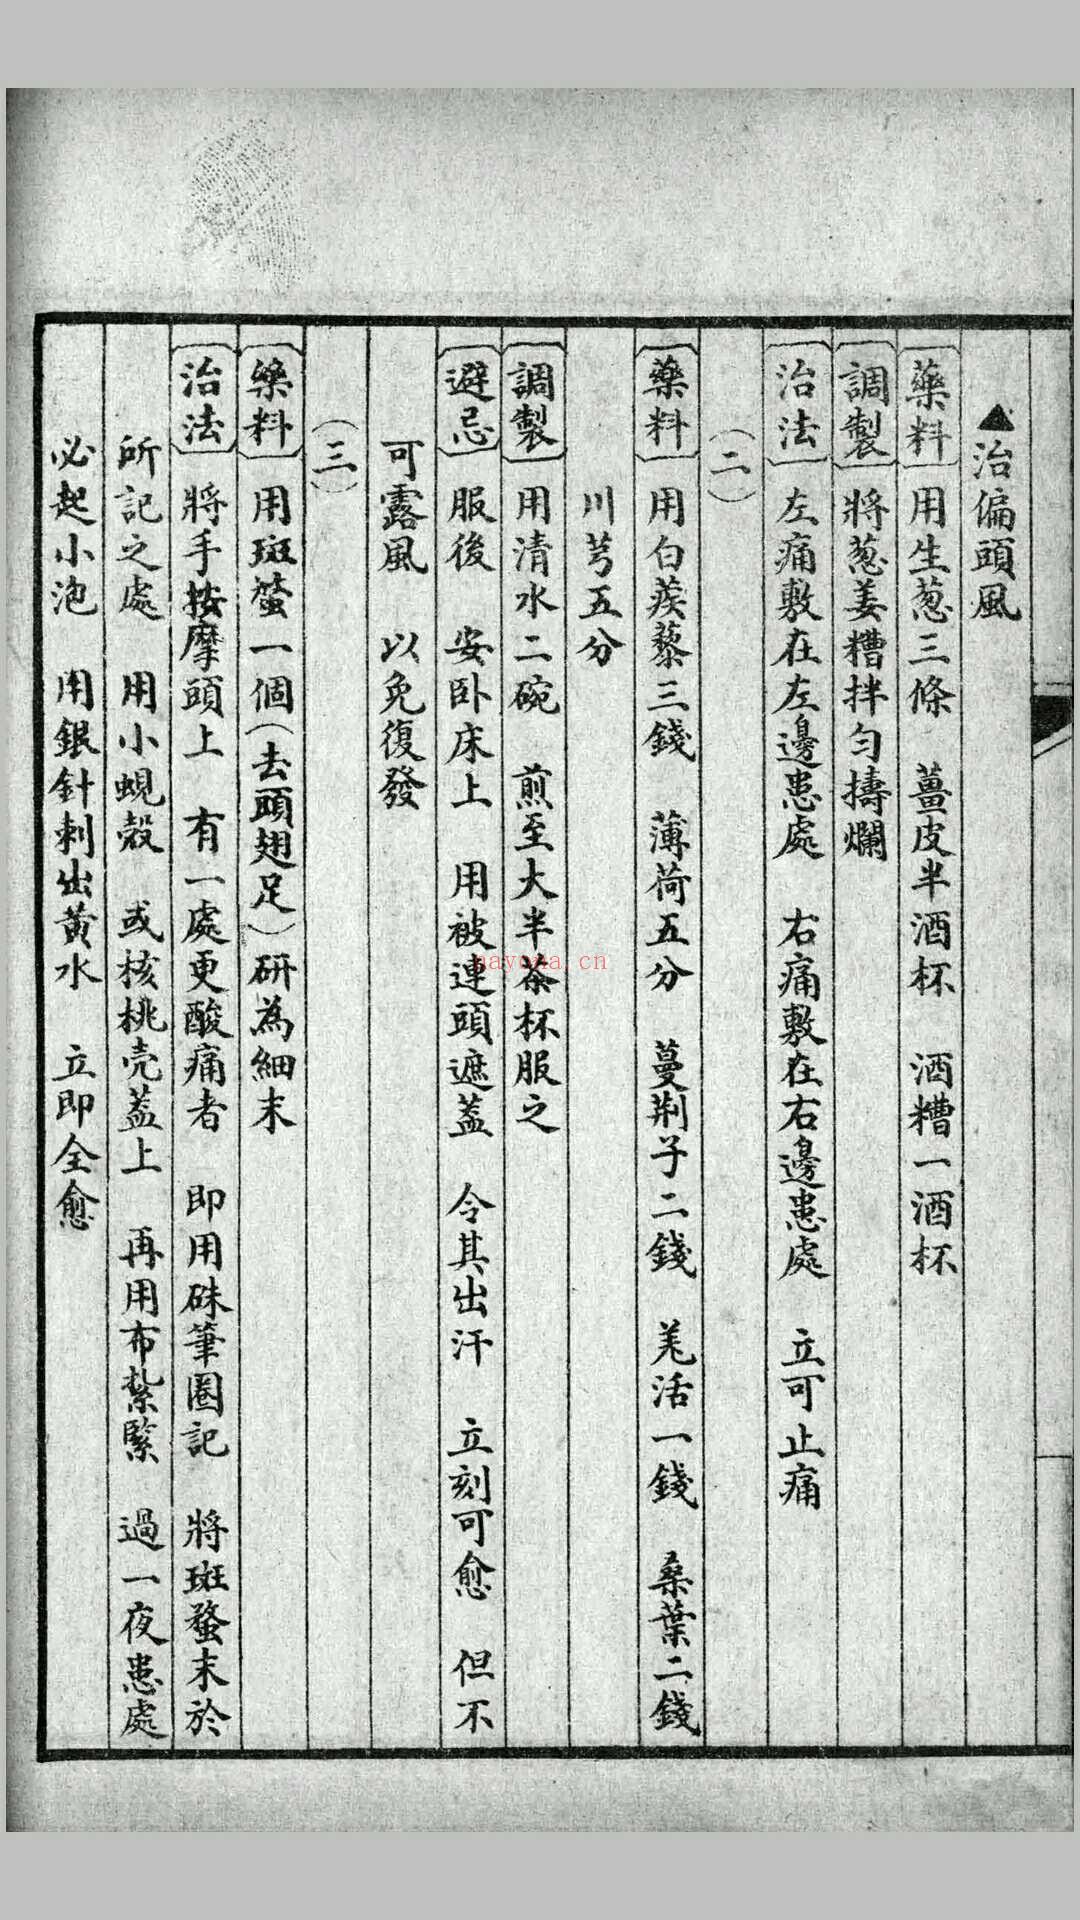 ▲治偏頭風
〔藥料〕用生葱三條　薑皮半酒杯　酒糟一酒杯
〔調製〕將葱姜糟拌勻擣爛
〔治法〕左痛敷在左邊患處　右痛敷在右邊患處　立可止痛
（二）
〔藥料〕用白蒺藜三錢　薄荷五分　蔓荆子二錢　羌活一錢　桑葉二錢
川芎五分
〔調製〕用清水二碗　煎至大半茶杯服之
〔避忌〕服後　安卧床上　用被連頭遮蓋　令其出汗　立刻可愈　但不
可露風　以免復發
（三）
〔藥料〕用斑蝥一個（去頭翅足）研為細末
〔治法〕將手按摩頭上　有一處更酸痛者　即用硃筆圈記　將斑蝥末於
所記之處　用小蜆殼　或核桃壳蓋上　再用布紮緊　過一夜患處
必起小泡　用銀針刺出黄水　立即全愈
nayona.cn